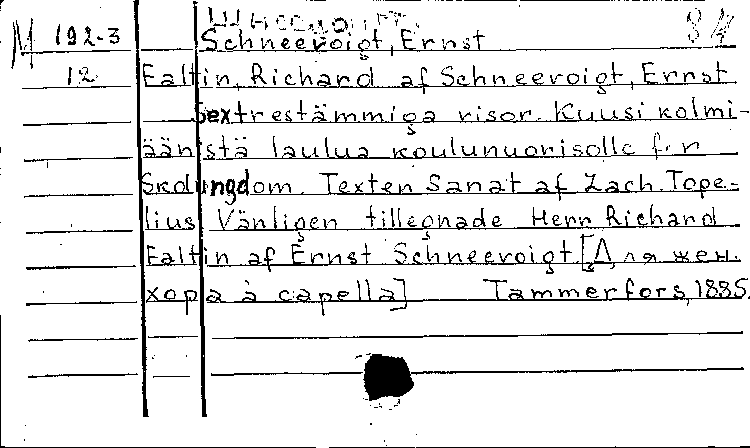 Шнеефойгт.
M 192-3 Schneevoigt, Ernst 84
12 Faltin, Richard af Schneevoigt, Ernst
Sex trestämmiga visor. Kuusi kolmi-
äänistä laulua koulunuorisolle för
Skolungdom. Texten Sanat af Zach. Tope-
lius Vänligen tillegnade Herr Richard
Faltin af Ernst Schneevoigt [Для жен.
хора à capella] Tammerfors, 1885.